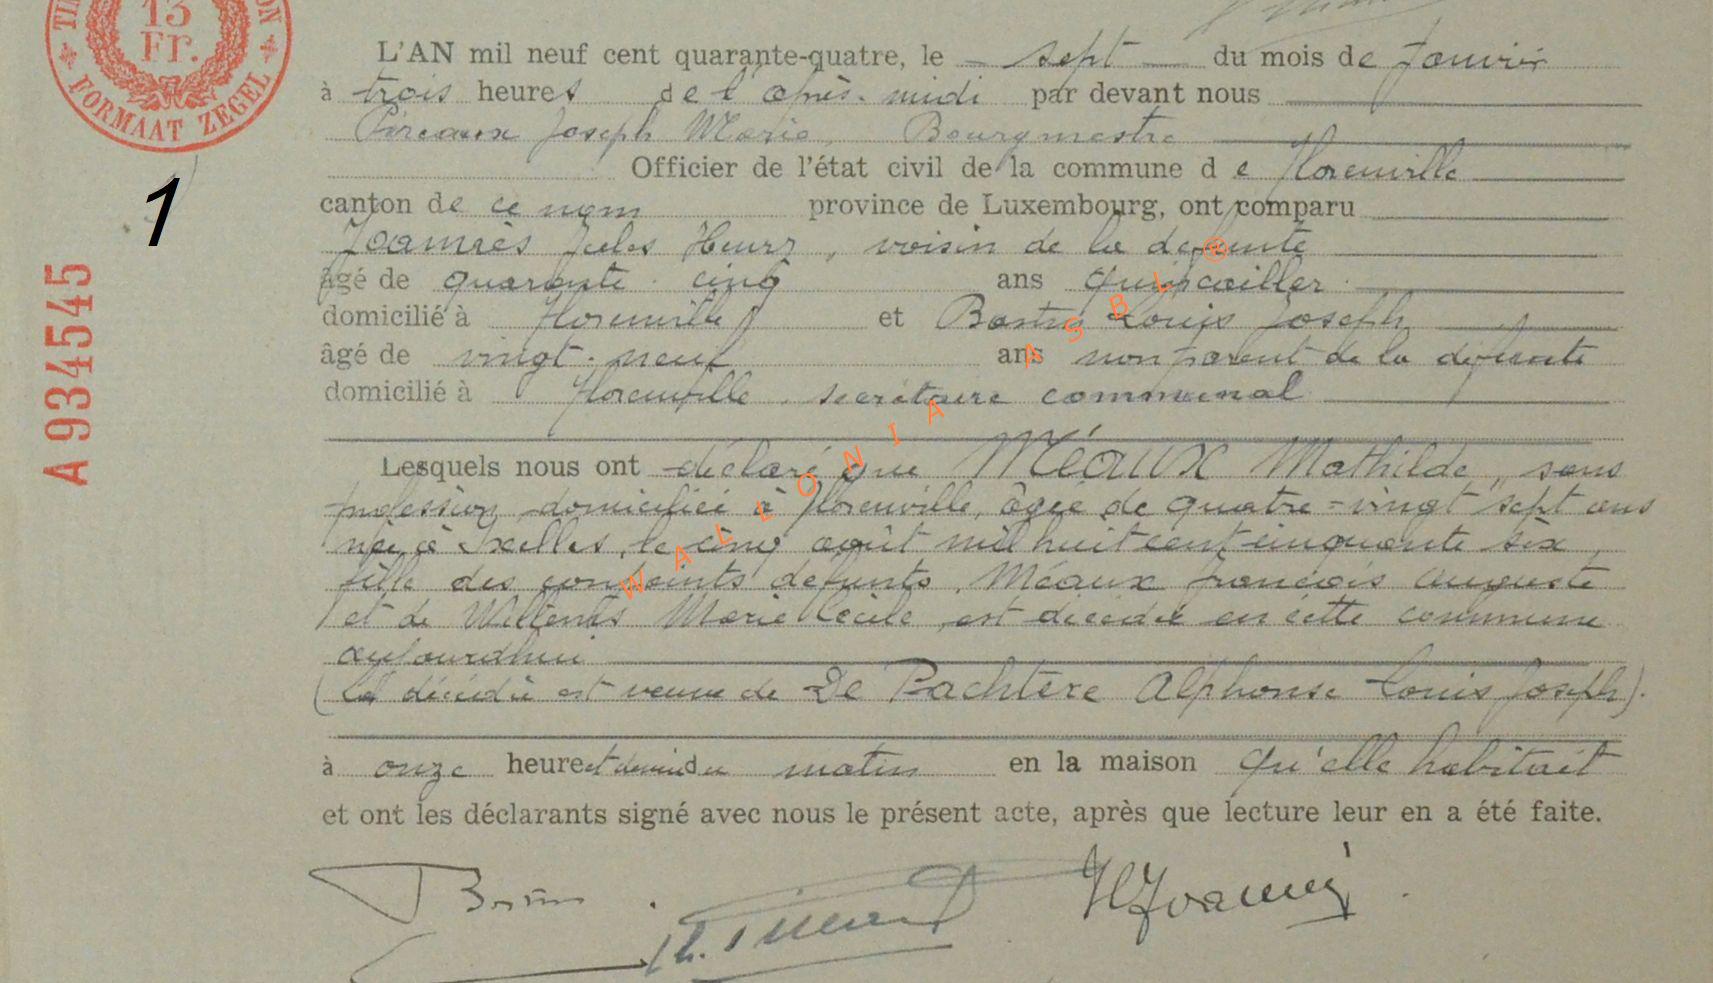 13
Fr.
FORMAAT ZEGEL
L'AN mil neuf cent quarante-quatre, le sept du mois de Janvier
à trois heures de l'après-midi par devant nous
Joseph Marie, Bourgmestre
Officier de l'état civil de la commune de Florenville
canton de ce nom province de Luxembourg, ont comparu
Jules Henri, voisin de la défunte
âgé de quarante-cinq ans quincailler
domicilié à Florenville et Louis Joseph
âgé de vingt-neuf ans non parent de la défunte
domicilié à Florenville, secrétaire communal
Lesquels nous ont déclaré que Méaux Mathilde, sans
profession, domiciliée à Florenville, âgée de quatre-vingt sept ans
née à Ixelles, le cinq août mil huit cent cinquante six,
fille des conjoints défunts, Méaux François Auguste
et de Willems Marie Cécile, est décédée en cette commune
aujourd'hui
(La décédée est veuve de De Pachtere Alphonse Louis Joseph).
à onze heures et demie du matin en la maison qu'elle habitait
et ont les déclarants signé avec nous le présent acte, après que lecture leur en a été faite.
A 934545
1
WALLONIA ASBL ®